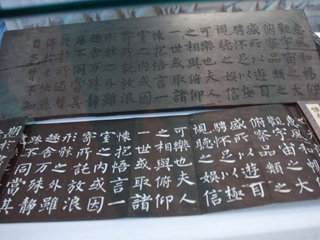 惠風和暢仰
觀宇宙之大
俯察品類之
盛所以遊目
騁懷足以極
視聽之娛信
可樂也夫人
之相與俯仰
一世或取諸
懷抱悟言一
室之內或因
寄所託放浪
形骸之外雖
趣舍萬殊靜
自足
風和
宇宙之大
察品類之
盛所以遊目
騁懷足以極
視聽之娛信
可樂也夫人
之相與俯仰
一世或取諸
懷抱悟言一
室之內或因
寄所託放浪
形骸之外雖
趣舍萬殊靜
不同當其